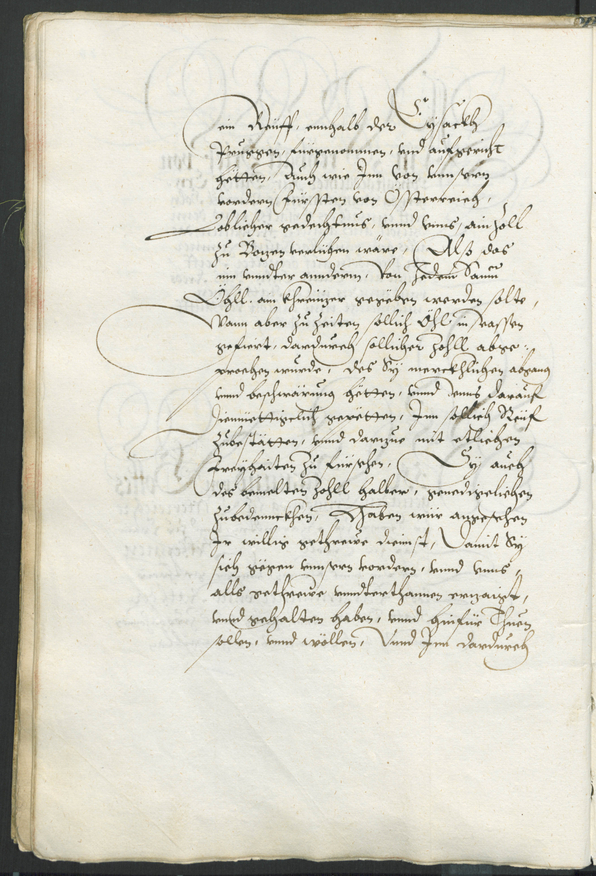 ein Rueff, ennhalb der Eysackh
Pruggen, fürgenomen, vnd aufgericht
hetten, Auch wie Inn von vnnsern
vordern Fürssten von Össterreich,
Loblicher gedechtnus, vnnd vnns, ain Zoll
zu Bozen verlihen wäre, Also das
im vnnter anndern, Von Jedem Saum
Öhll, ain Khreuzer gegeben werden solte,
Wann aber zu zeiten sollich Öhl in Vassen
gefiert, dardurch sollicher Zohll abge-
prochen wurde, des Sy merckhlichen abganng
vnnd beschwärung hetten, vnnd vnns darauf
diemüettigclich gepetten, Inn sollich Rueff
zubestätten, vnnd darzue mit etlichen
Freyhaiten zu fürsehen, Sy auch
des bemelten Zohll halber, genedigclichen
zubedennckhen, Haben wür angesehen
Ir willig gethrewe diennst, Damit Sy
sich gegen vnnsern vordern, vnnd vnns,
alls gethrewe vnnderthannen erzaigt,
vnnd gehalten haben, vnnd hinfür Thuen
sollen, vnnd wöllen, Vnnd Inn dardurch